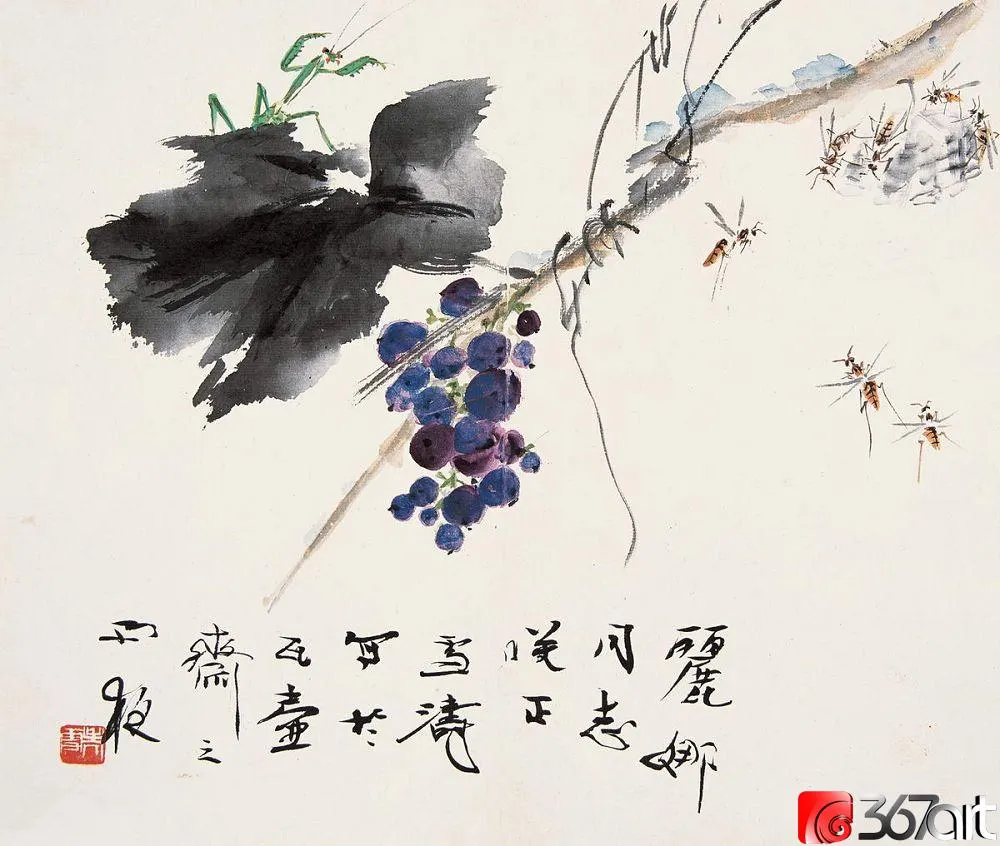 麗娜
同志
咲正
雪濤
寫於
瓦壺
齋之
雨夜
367art